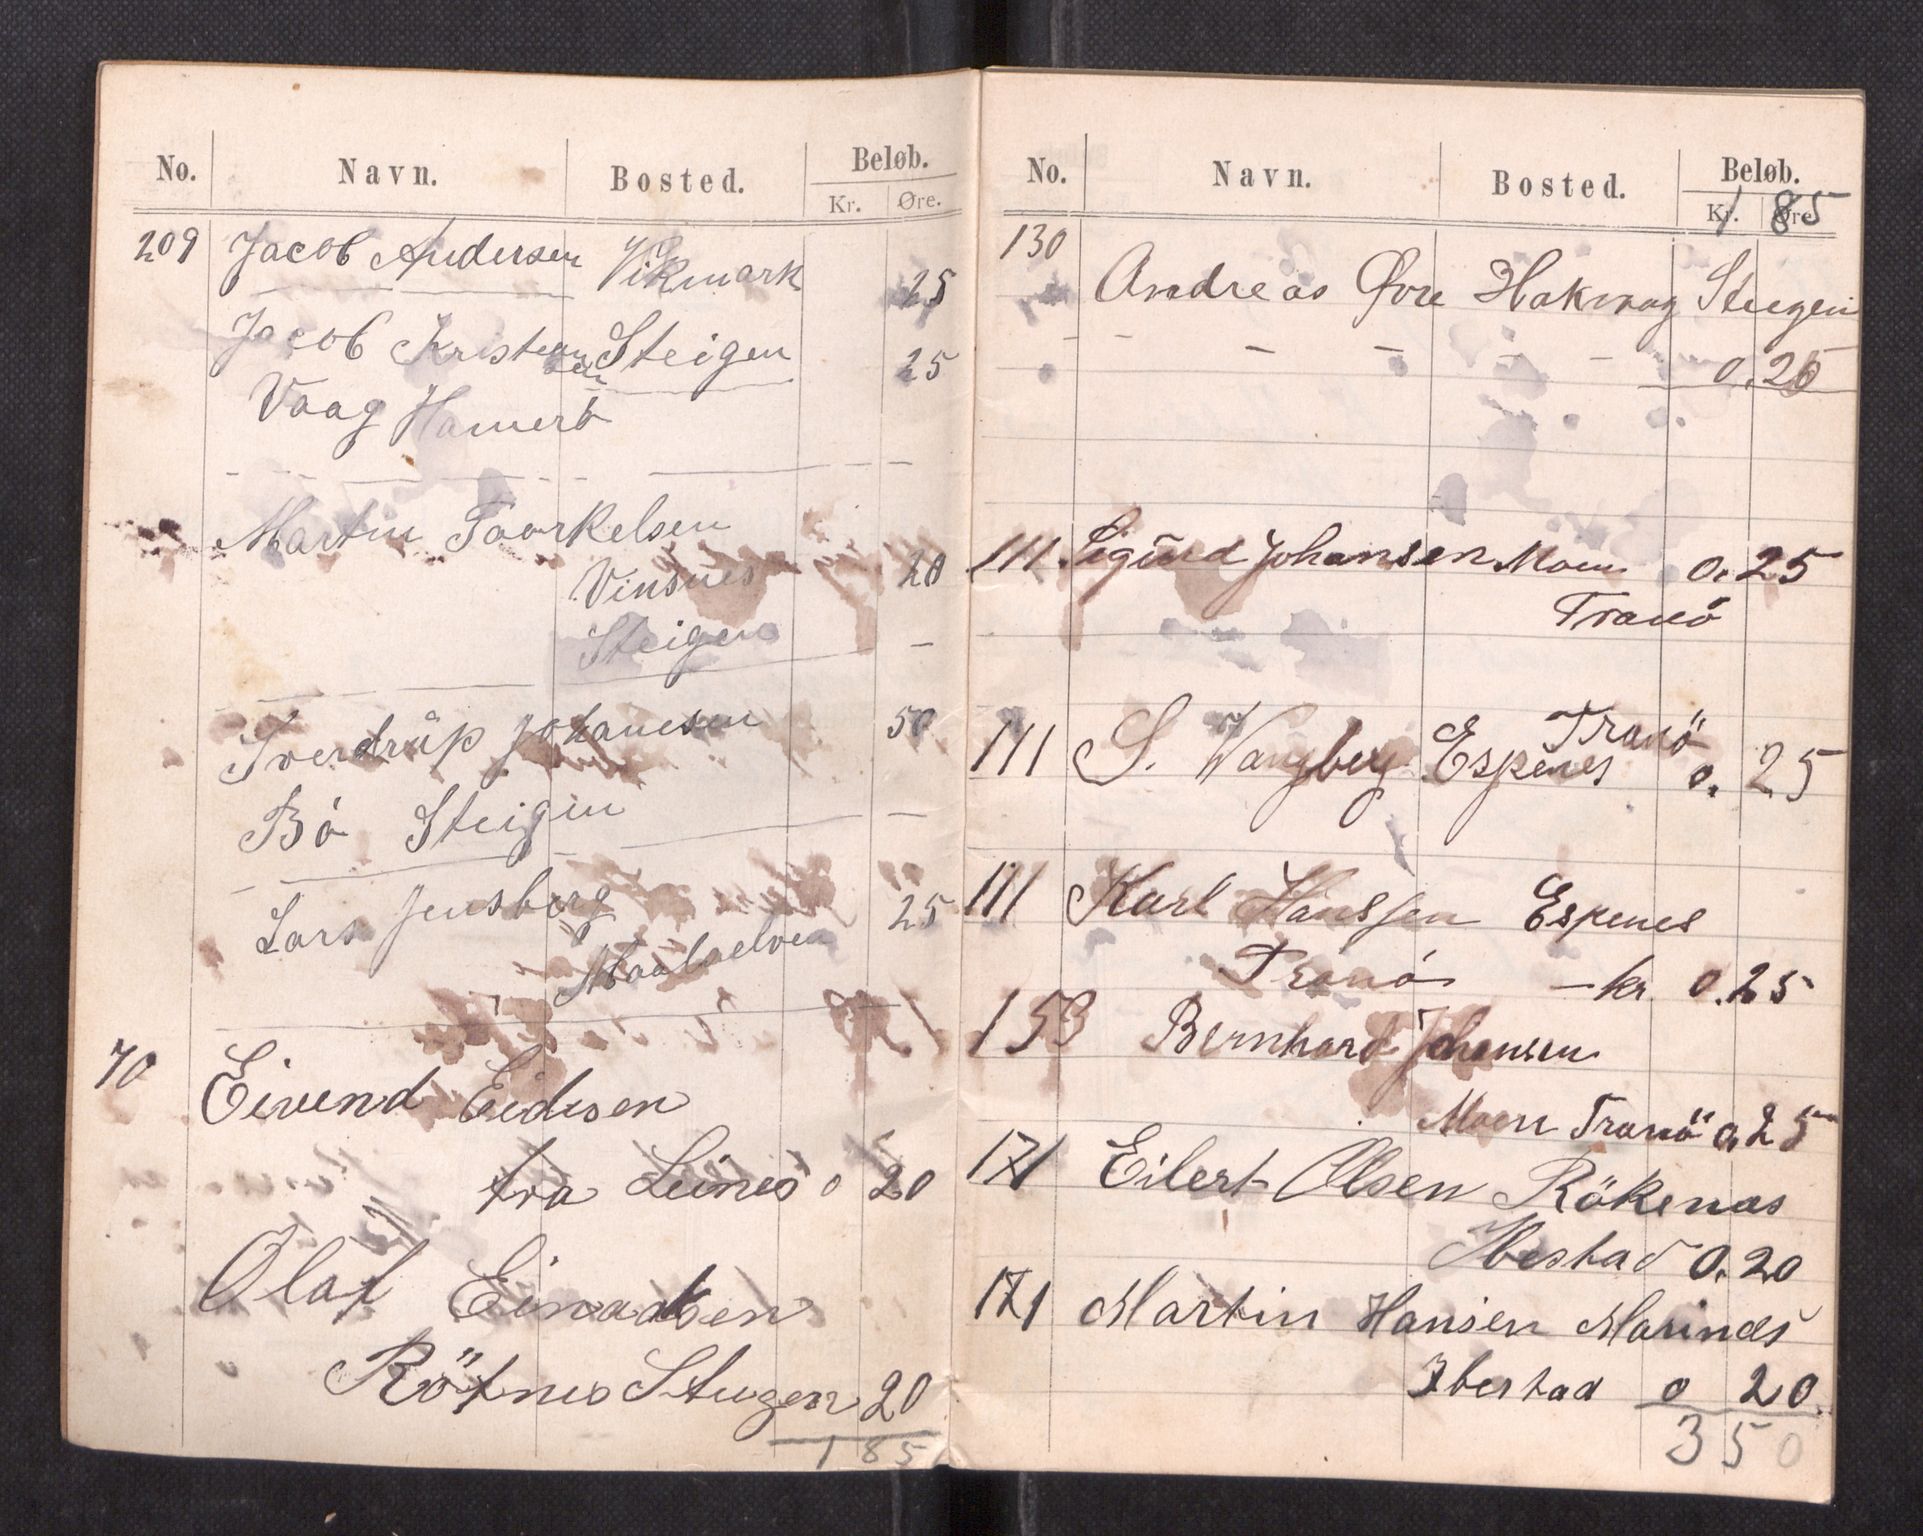 No. Navn. Bosted. Beløb.
Kr. Øre.
209 Jacob Andersen Vikmark 25
Jacob Kristiansen Steigen 25
Vaag Hamerö
Martin Taarkelsen
Vinsnes 20
Steigen
Sverdrúp Johanesen 50
Bö Steigen
Lars Jensberg 25
Maalselven
70 Eivend Eidisen
fra Leines 0 20
Olaf Einadsen
Rötnes Steigen 20
1 85
No. Navn. Bosted. Beløb.
Kr. Øre.
1 85
130 Andreas Øvre Hakvaag Steigen
0.25
111 Sigurd Johansen Moen 0.25
Tranö
111 S. Wangberg Espenes Tranö 0.25
111 Karl Hanssen Espenes
Tranö – kr. 0.25
153 Bernhard Johansen
Moen Tranö 0.25
171 Eilert Olsen Rökenas
Ibestad 0.20
171 Martin Hansen Marinds
Ibestad 0 20.
3 50